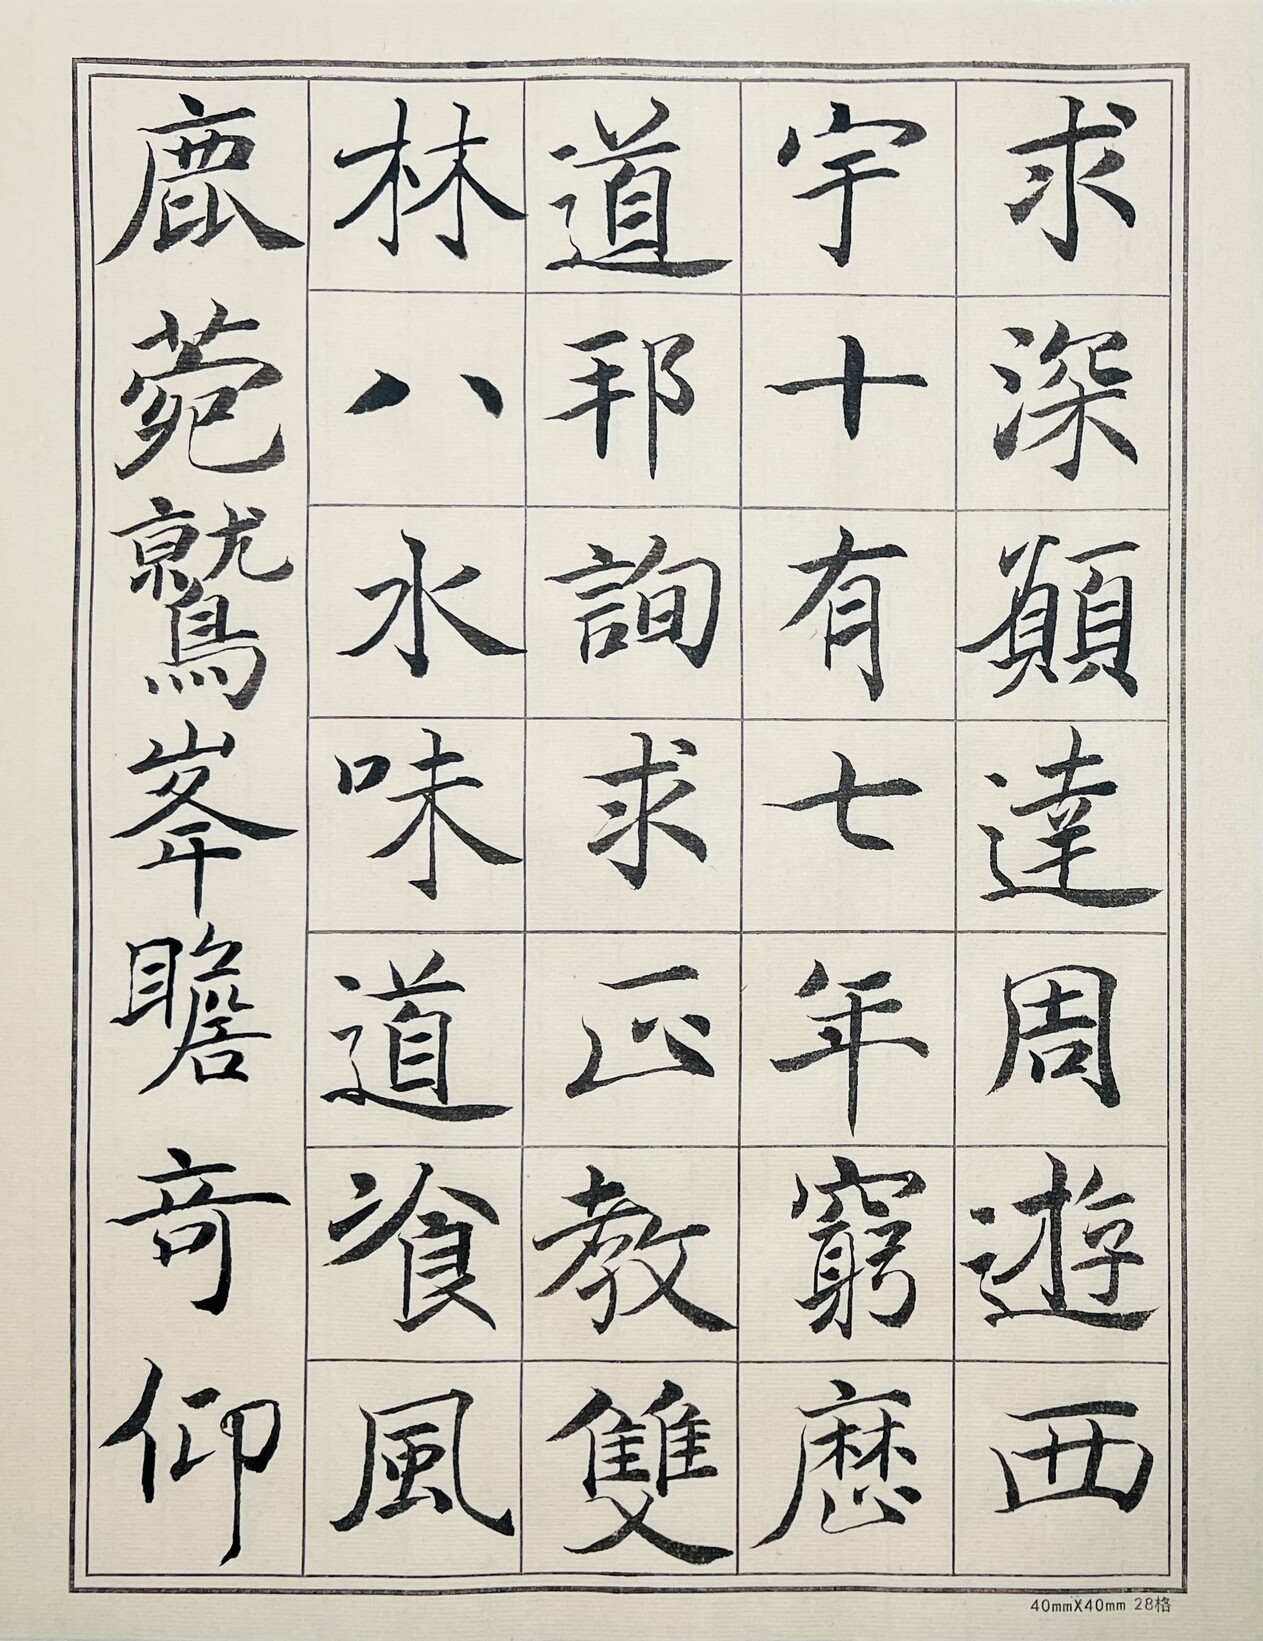 求深願達周遊西
宇十有七年窮歷
道邦詢求正教雙
林八水味道飡風
鹿菀鷲峯瞻奇仰
40mmX40mm 28格